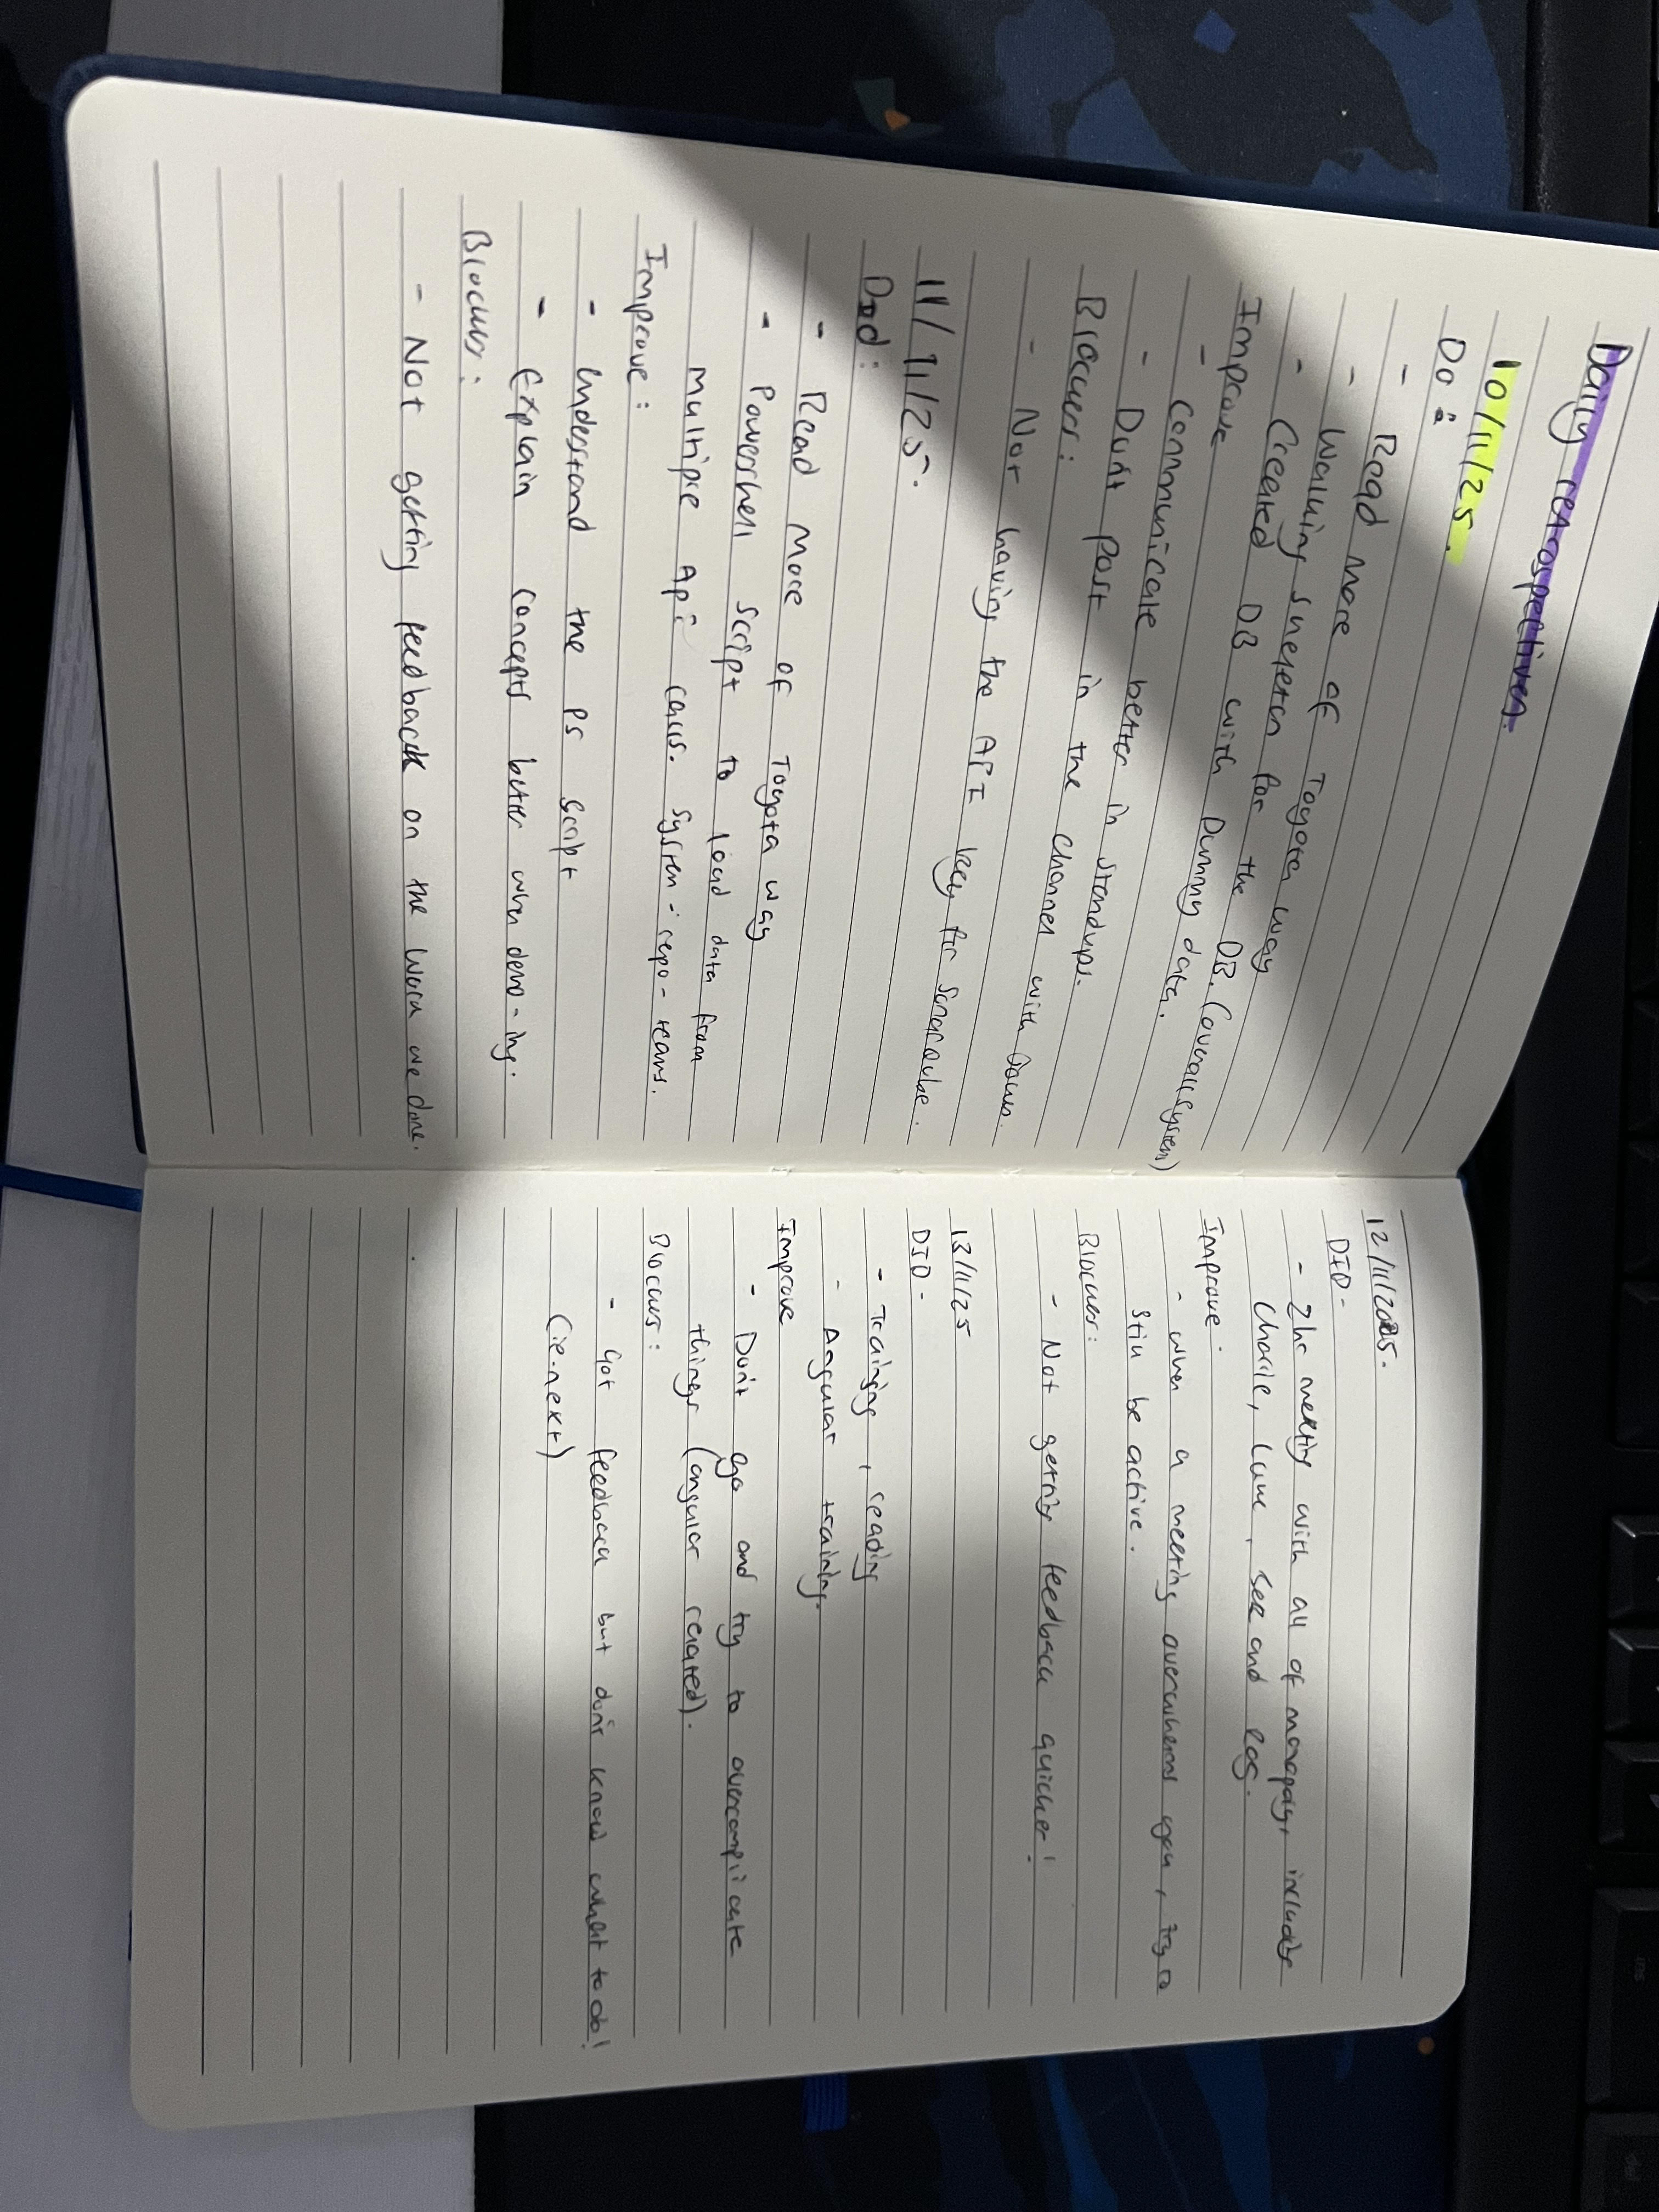 Daily retrospectives.
10/11/25.
Do:
- Read more of Toyota way
- Walking skeleton for the DB. (overall system)
- Created DB with Dummy data.
Improve
- Communicate better in standups.
- Don't post in the channel with
Blockers:
- Not having the API key for Sonarqube.
11/11/25.
Did:
- Read more of Toyota way
- Powershell script to load data from
multiple Api calls. System - repo - teams.
Improve:
- Understand the PS script
- Explain concepts better when demo-ing.
Blockers:
- Not getting feedback on the work we done.
12/11/2025.
DID -
- 2hr meeting with all of
Charlie, Luke, see and
Improve.
- when a meeting overwhelms you, try to
still be active.
Blockers:
- Not getting feedback quicker!
13/11/25
DID -
- Training, reading
- Angular training.
Improve
- Don't go and try to overcomplicate
things (angular related).
Blockers:
- Got feedback but don't know what to do!
(i.e. next)